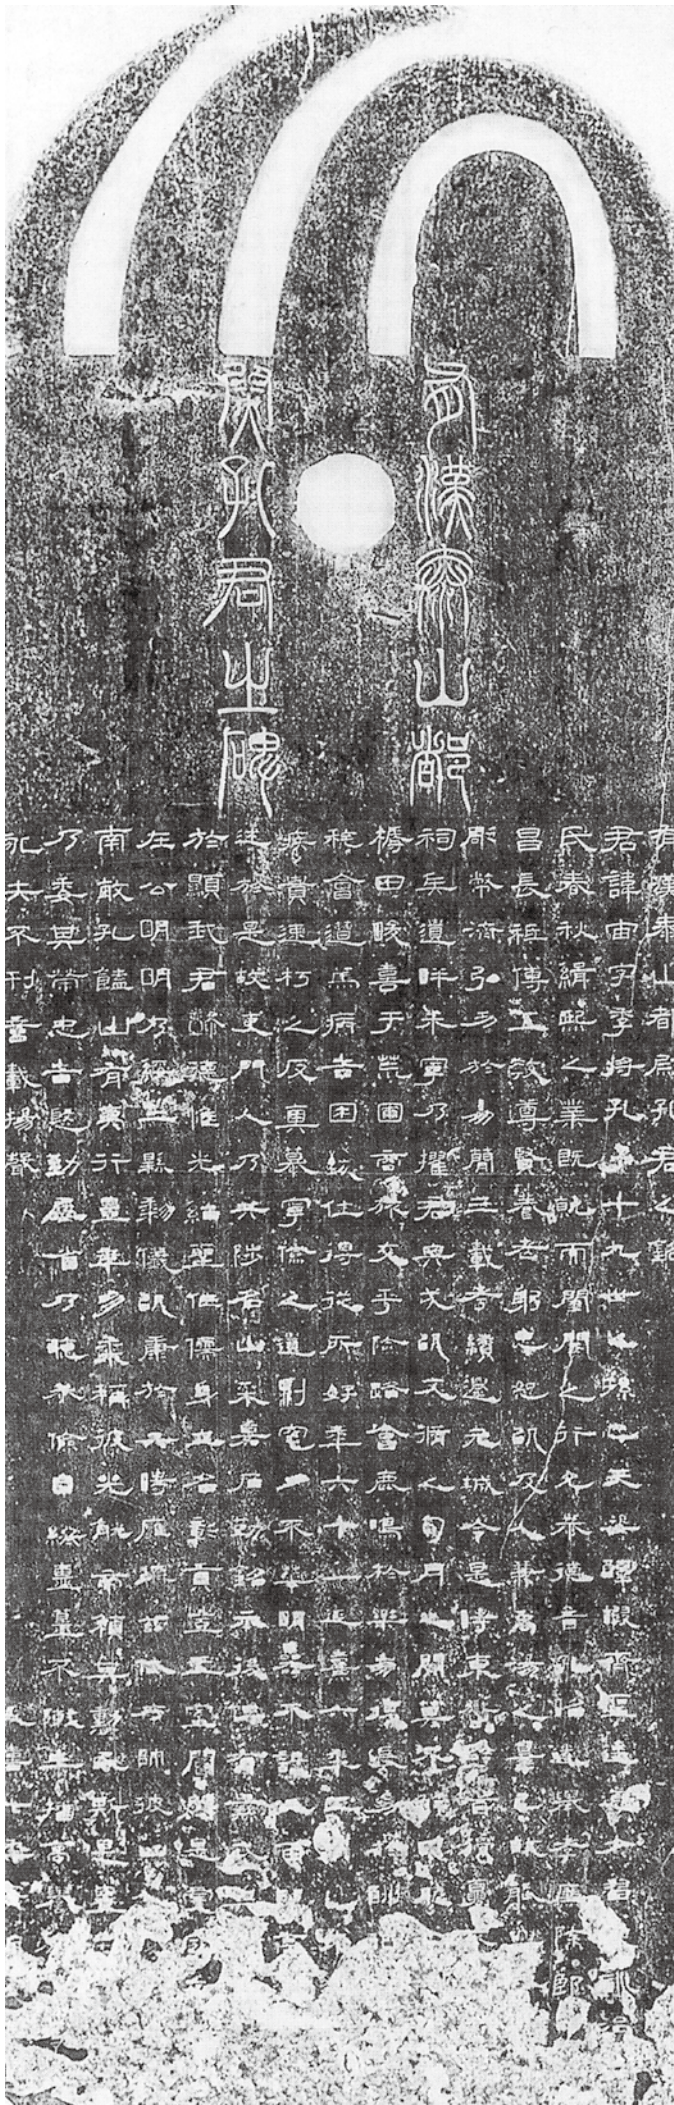 有漢泰山都
尉孔君之碑
有漢泰山都尉孔君之銘
君諱宙字季將孔子十九世之孫也天姿醇嘏齊聖達道少習家訓治嚴
氏春秋緝熙之業既就而閨閾之行允恭德音孔昭遂舉孝廉除郎中都
昌長祗傅五教尊賢養老躬忠恕以及人兼禹湯之罪己故能興
彫幣濟弘功於易簡三載考績遷元城令是時東嶽黔首猾夏
祠兵遺畔未寧乃擢君典戎以文脩之旬月之間莫不解甲服罪
㭒田畯喜于荒圃商旅交乎險路會鹿鳴於樂崩復長幼於酬
稔會遭篤病告困致仕得從所好年六十一延熹六年正月乙
疾貴速朽之反真慕寧儉之遺則窀夕不華明器不設凡百卬高
述於是故吏門人乃共陟名山采嘉石勒銘示後俾有彝式
於顯我君懿德惟光紹聖作儒身立名彰貢登王室閽閤是虔夙
在公明明乃綏二縣黎儀以康於亓時雍撫茲岱方帥彼凶人
南畝孔饁山有夷行豐年多黍稱彼兕觥帝賴其勳民斯是皇
乃委其榮忠告殷勤屢省乃聽恭儉自終簠簋不敶生播高譽
永矢不刊億載揚聲 延熹七年